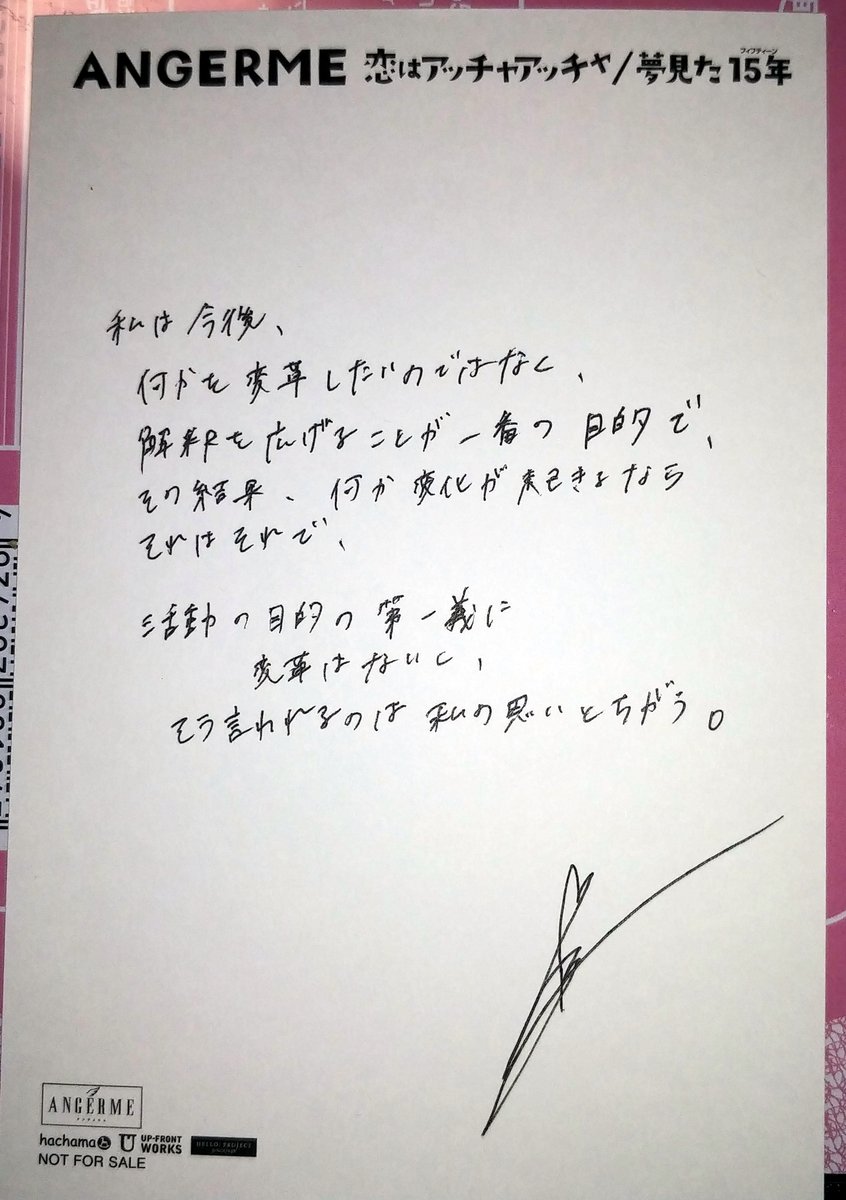 ANGERME 恋はアッチャアッチャ/夢見た15年
フィフティーン
私は今後、
何かを変革したいのではなく、
解釈を広げることが一番の目的で、
その結果、何か変化が起きるなら
それはそれで、
活動の目的の第一義に
変革はないし、
そう言われるのは私の思いとちがう。
ANGERME
アンジュルム
hachama
UP-FRONT WORKS
HELLO! PROJECT
NOT FOR SALE